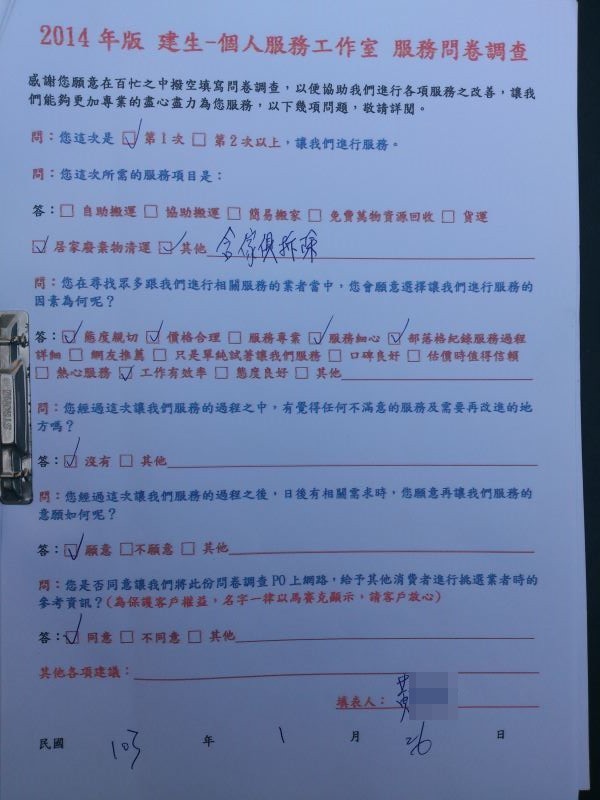 2014 年版 建生-個人服務工作室 服務問卷調查
感謝您願意在百忙之中撥空填寫問卷調查，以便協助我們進行各項服務之改善，讓我
們能夠更加專業的盡心盡力為您服務，以下幾項問題，敬請詳閱。
問：您這次是 ☑ 第 1 次 □ 第 2 次以上，讓我們進行服務。
問：您這次所需的服務項目是：
答：□ 自助搬運 □ 協助搬運 □ 簡易搬家 □ 免費萬物資源回收 □ 貨運
☑ 居家廢棄物清運 ☑ 其他 含傢俱拆除
問：您在尋找眾多跟我們進行相關服務的業者當中，您會願意選擇讓我們進行服務的
因素為何呢？
答：☑ 態度親切 ☑ 價格合理 □ 服務專業 ☑ 服務細心 ☑ 部落格紀錄服務過程
詳細 □ 網友推薦 □ 只是單純試著讓我們服務 □ 口碑良好 □ 估價時值得信賴
□ 熱心服務 ☑ 工作有效率 □ 態度良好 □ 其他
問：您經過這次讓我們服務的過程之中，有覺得任何不滿意的服務及需要再改進的地
方嗎？
答：☑ 沒有 □ 其他
問：您經過這次讓我們服務的過程之後，日後有相關需求時，您願意再讓我們服務的
意願如何呢？
答：☑ 願意 □不願意 □ 其他
問：您是否同意讓我們將此份問卷調查 PO 上網路，給予其他消費者進行挑選業者時的
參考資訊？(為保護客戶權益，名字一律以馬賽克顯示，請客戶放心)
答：☑ 同意 □ 不同意 □ 其他
其他各項建議：
填表人：黃
民國 103 年 1 月 26 日